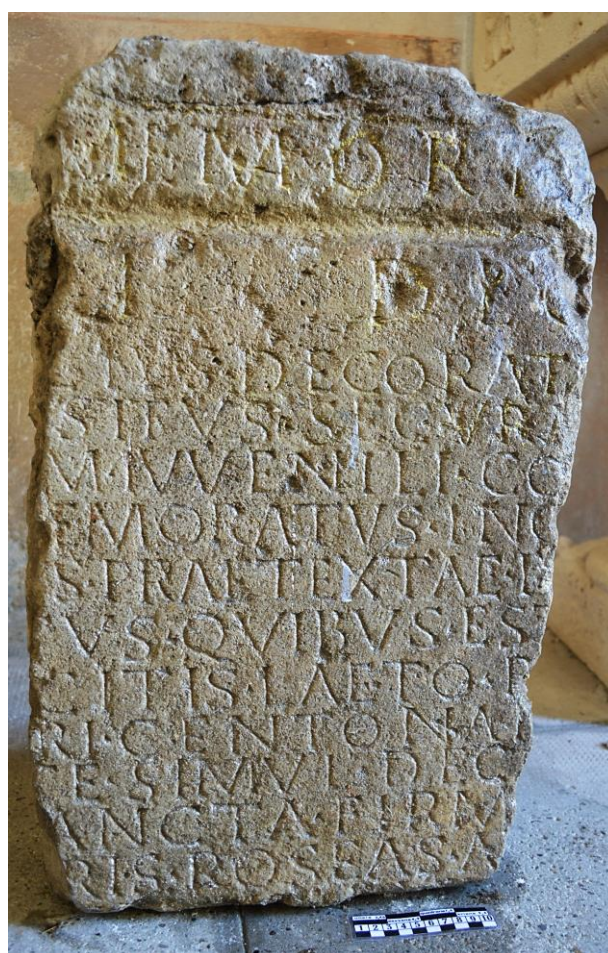 MEMORI
DEC
DECORAT
SITVS·SECVRA
M·IVVENILI·CO
EMORATVS·INC
S·PRAETEXTAE·
VS·QVIBVS·ES
ITIS·LAETO·P
RI·CENTONA
E·SIMVL·DEC
ANCTA·FIRM
RIS·ROSEAS·A
1 2 3 4 5 6 7 8 9 10